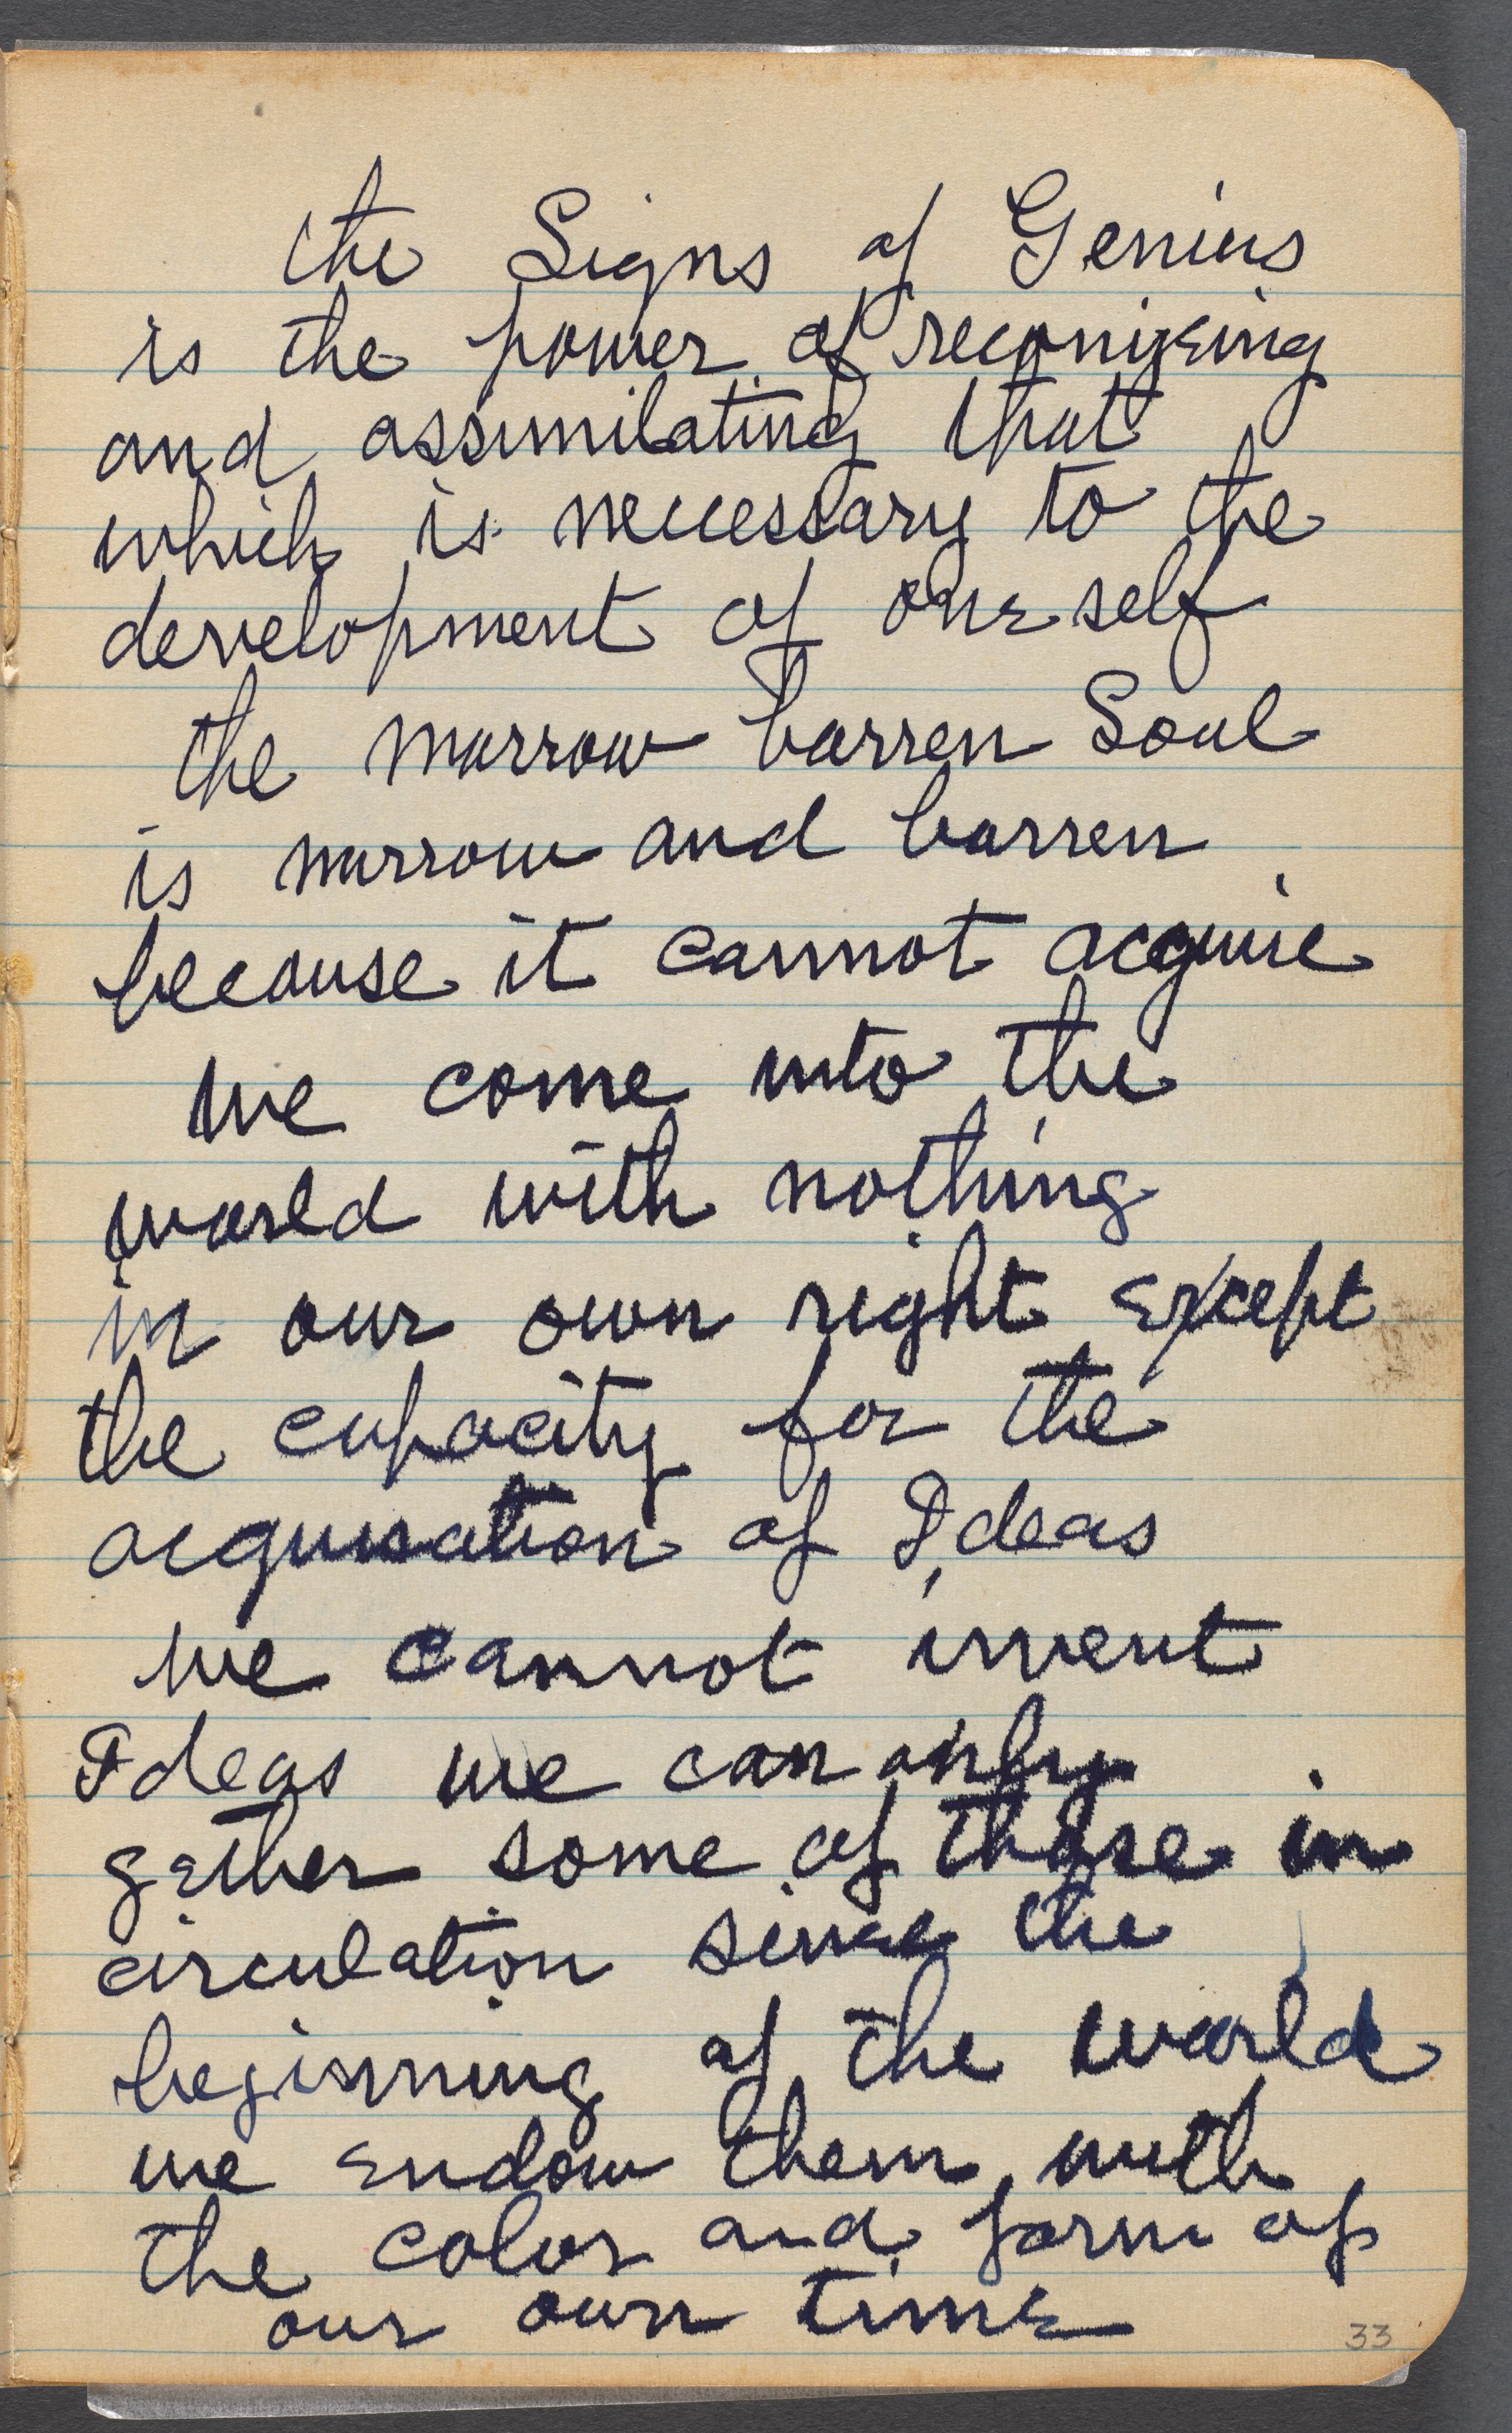 the Signs of Genius
is the power of reconizeing
and assimilating that
which is neccessary to the
development of oneself
the narrow barren Soul
is narrow and barren
because it cannot acquire
we come into the
world with nothing
in our own right except
the capacity for the
acquisation of Ideas
we cannot invent
Ideas we can only
gether some of those in
circulation since the
beginning of the world
we endow them with
the color and form of
our own time
33